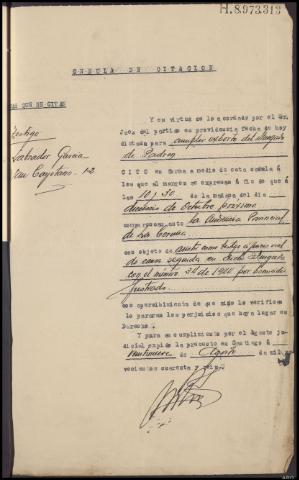 H.8.973.313
CEDULA DE CITACION
QUE SE CITAN
Y en virtud de lo acordado por el Sr.
Juez del partido en providencia fecha de hoy
dictada para cumplir exhorto del Juzgado
de Padron
Testigo
Salvador Garcia
San Cayetano 12
CITO en forma a medio de esta cédula á
los que al margen se expresan á fin de que á
las 10 y 30 de la mañana del día
de Octubre proximo
comparezcan ante la Audiencia Provincial
de La Coruña
con objeto de asistir como testigo a juicio oral
de causa seguida en dicho Juzgado
con el número 30 de 1940 por homicidio
frustrado.
con apercibimiento de que sino lo verifican
le pararan los perjuicios que haya lugar en
Derecho.
Y para su cumplimiento por el Agente
judicial expido la presente en Santiago á
veintinueve de Agosto de mil
vecientos cuarenta y